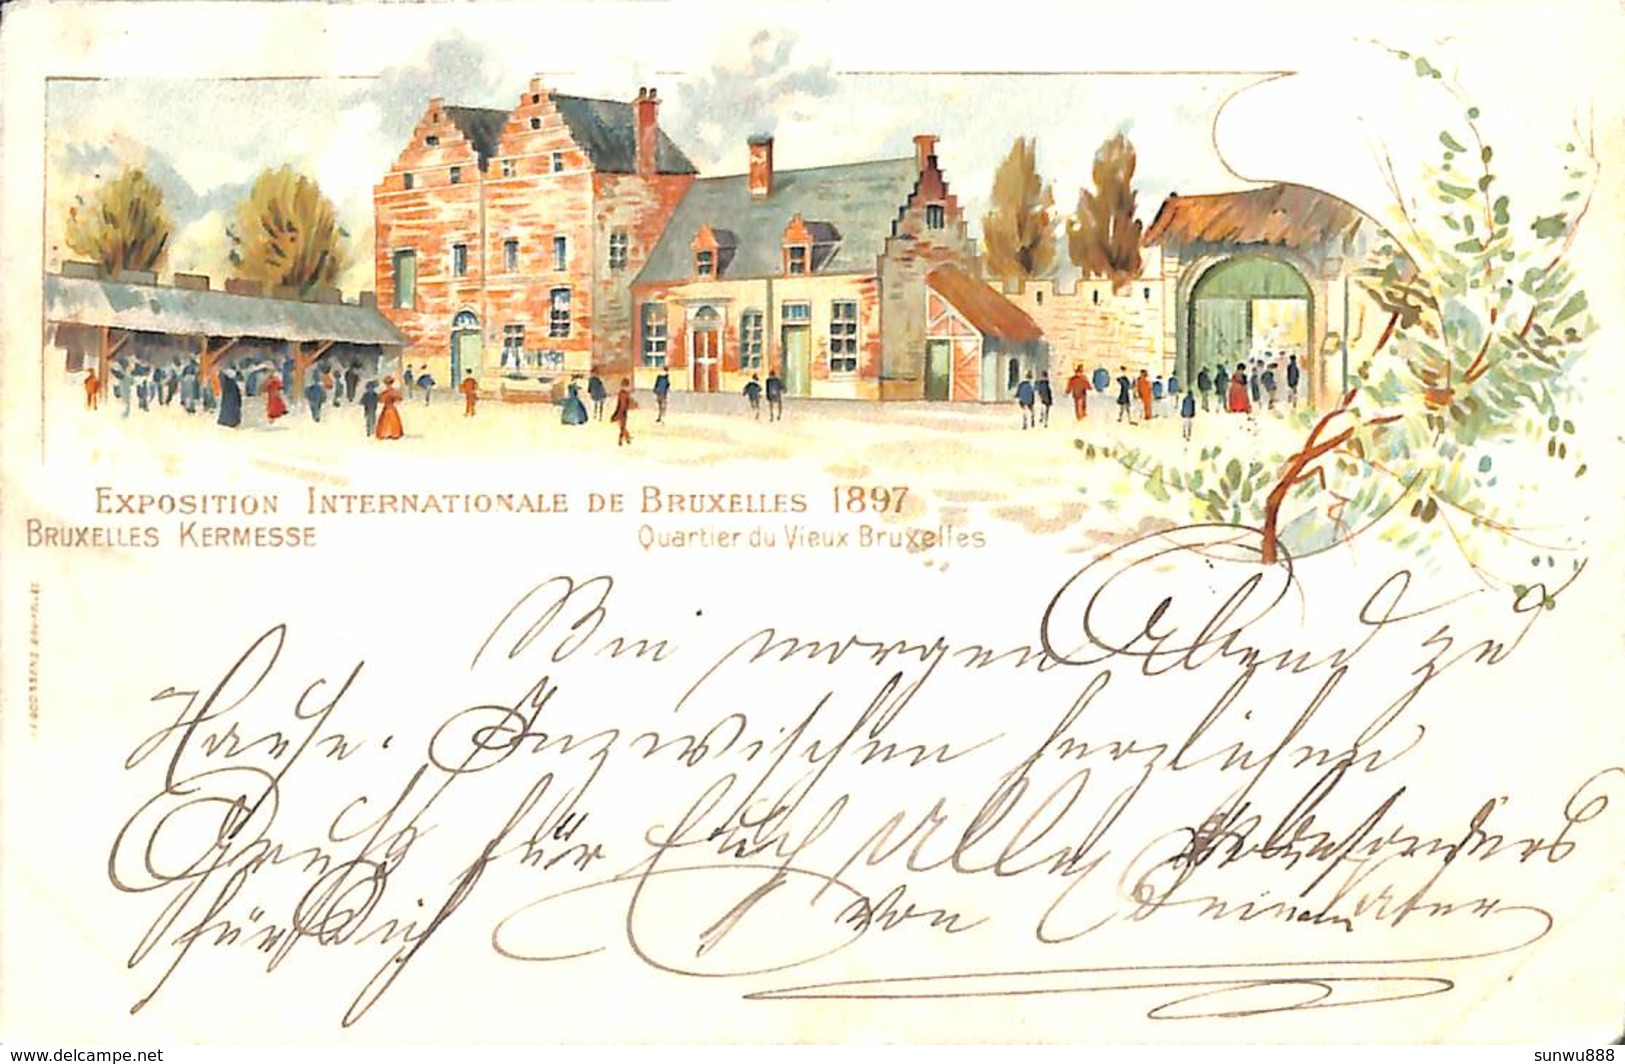 EXPOSITION INTERNATIONALE DE BRUXELLES 1897
BRUXELLES KERMESSE
Quartier du Vieux Bruxelles
Bin morgen Abend zu
Hause. Inzwischen herzlichen
Gruß für Euch Alle besonders
für Dich von Deinem Vater
www.delcampe.net
sunwu888